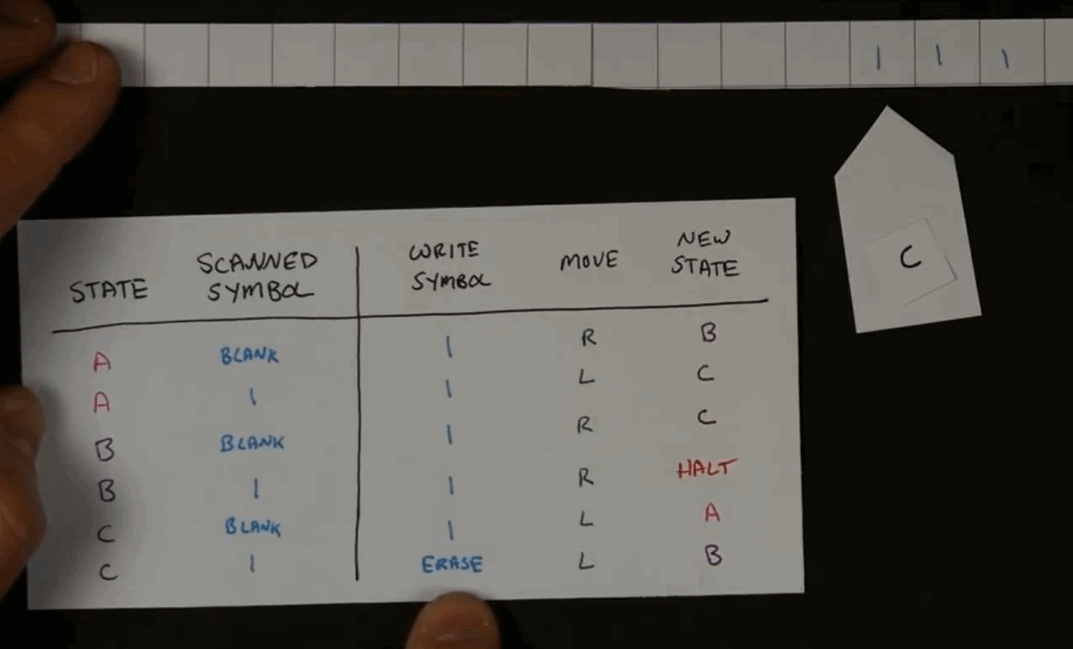 1 1 1
C
STATE SCANNED SYMBOL WRITE SYMBOL MOVE NEW STATE
A BLANK 1 R B
A 1 1 L C
B BLANK 1 R C
B 1 1 R HALT
C BLANK 1 L A
C 1 ERASE L B